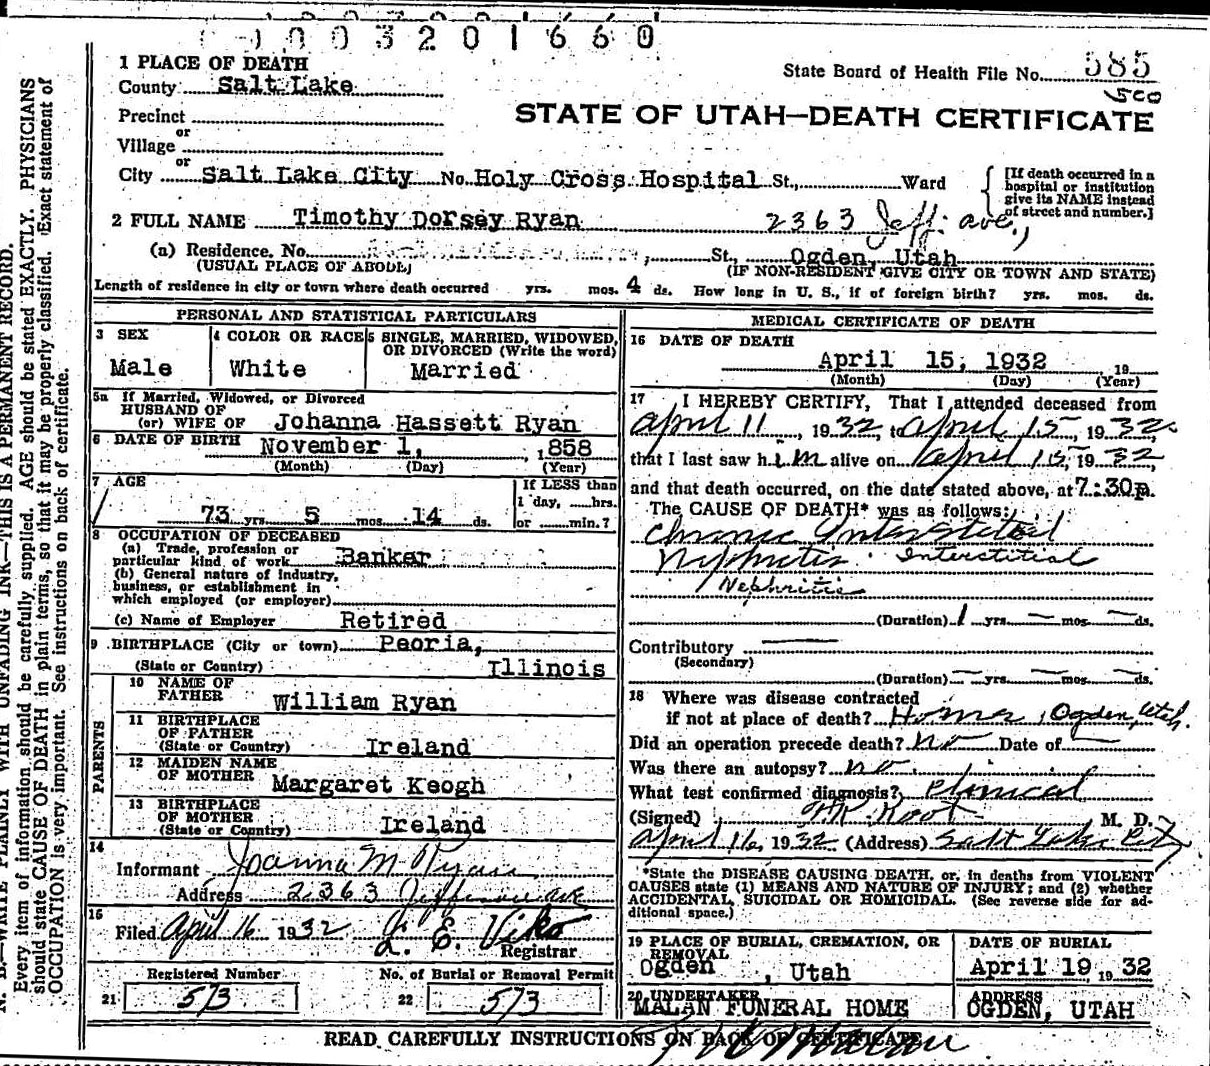 1003201660
1 PLACE OF DEATH
State Board of Health File No. 585
County Salt Lake
500
Precinct
STATE OF UTAH—DEATH CERTIFICATE
or
Village
or
City Salt Lake City No. Holy Cross Hospital St., Ward
[If death occurred in a hospital or institution give its NAME instead of street and number.]
2 FULL NAME Timothy Dorsey Ryan 2363 Jeff. ave.,
(a) Residence. No. St., Ogden, Utah
(USUAL PLACE OF ABODE) (IF NON-RESIDENT GIVE CITY OR TOWN AND STATE)
Length of residence in city or town where death occurred yrs. mos. 4 ds. How long in U. S., if of foreign birth? yrs. mos. ds.
PERSONAL AND STATISTICAL PARTICULARS
3 SEX
Male
4 COLOR OR RACE
White
5 SINGLE, MARRIED, WIDOWED,
OR DIVORCED (Write the word)
Married
5a If Married, Widowed, or Divorced
HUSBAND OF
(or) WIFE OF Johanna Hassett Ryan
6 DATE OF BIRTH November 1, 1858
(Month) (Day) (Year)
7 AGE
73 yrs. 5 mos. 14 ds.
If LESS than
1 day, hrs.
or min.?
8 OCCUPATION OF DECEASED
(a) Trade, profession or
particular kind of work Banker
(b) General nature of industry,
business, or establishment in
which employed (or employer)
(c) Name of Employer Retired
9 BIRTHPLACE (City or town) Peoria,
(State or Country) Illinois
PARENTS
10 NAME OF
FATHER William Ryan
11 BIRTHPLACE
OF FATHER
(State or Country) Ireland
12 MAIDEN NAME
OF MOTHER Margaret Keogh
13 BIRTHPLACE
OF MOTHER
(State or Country) Ireland
14
Informant Joanna M Ryan
Address 2363 Jefferson ave
15
Filed April 16 1932 L. E. Viko
Registrar
Registered Number No. of Burial or Removal Permit
21 573 22 573
MEDICAL CERTIFICATE OF DEATH
16 DATE OF DEATH
April 15, 1932 19
(Month) (Day) (Year)
17 I HEREBY CERTIFY, That I attended deceased from
April 11, 1932, to April 15, 1932
that I last saw him alive on April 15, 1932,
and that death occurred, on the date stated above, at 7:30p.
The CAUSE OF DEATH* was as follows:
Chronic Interstitial
Nephritis. Interstitial
Nephritis
(Duration) 1 yrs. — mos. — ds.
Contributory —
(Secondary)
(Duration) — yrs. — mos. — ds.
18 Where was disease contracted
if not at place of death? Home, Ogden, Utah.
Did an operation precede death? no Date of —
Was there an autopsy? no.
What test confirmed diagnosis? Clinical
(Signed) Root M. D.
April 16, 1932 (Address) Salt Lake City
*State the DISEASE CAUSING DEATH, or, in deaths from VIOLENT
CAUSES state (1) MEANS AND NATURE OF INJURY; and (2) whether
ACCIDENTAL, SUICIDAL OR HOMICIDAL. (See reverse side for ad-
ditional space.)
19 PLACE OF BURIAL, CREMATION, OR
REMOVAL
Ogden, Utah
DATE OF BURIAL
April 19 19 32
20 UNDERTAKER
MALAN FUNERAL HOME
ADDRESS
OGDEN, UTAH
READ CAREFULLY INSTRUCTIONS ON BACK OF CERTIFICATE
N. B.—WRITE PLAINLY WITH UNFADING INK—THIS IS A PERMANENT RECORD.
Every item of information should be carefully supplied. AGE should be stated EXACTLY. PHYSICIANS
should state CAUSE OF DEATH in plain terms, so that it may be properly classified. Exact statement of
OCCUPATION is very important. See instructions on back of certificate.